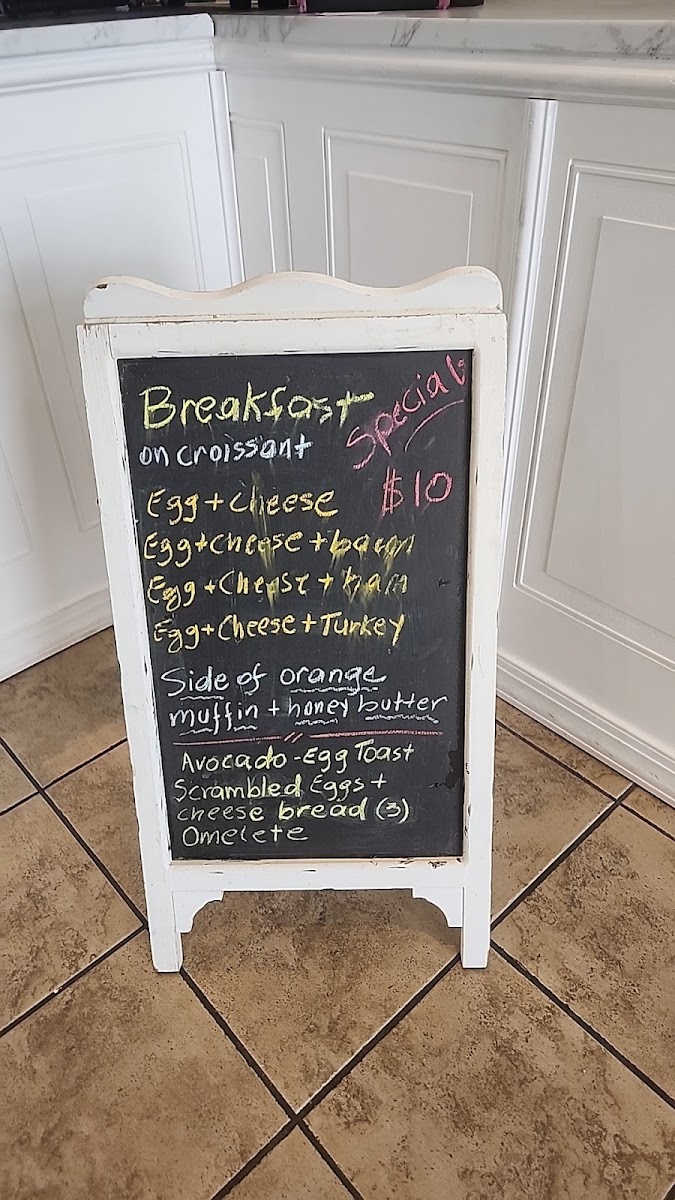 Breakfast
Special
on croissant
$10
Egg + cheese
Egg + cheese + bacon
Egg + Cheese + ham
Egg + Cheese + Turkey
Side of orange
muffin + honey butter
Avocado - Egg Toast
Scrambled Eggs +
cheese bread (3)
Omelete